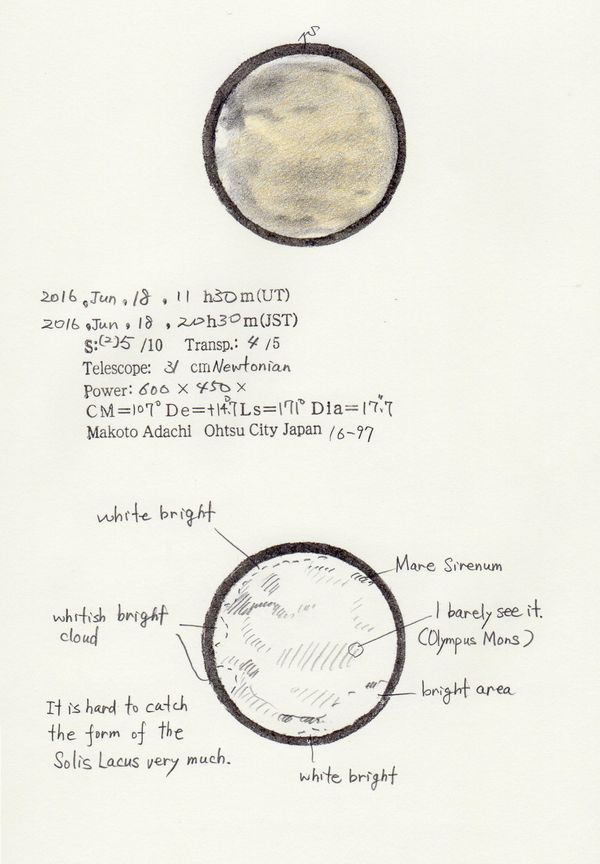 PS
2016, Jun, 18, 11 h30m(UT)
2016, Jun, 18, 20h30m(JST)
S:(2)5/10 Transp.: 4/5
Telescope: 31 cm Newtonian
Power: 600× 450×
CM=107° De=+14.°7 Ls=171° Dia=17."7
Makoto Adachi Ohtsu City Japan 16-97
white bright
Mare Sirenum
I barely see it.
(Olympus Mons)
whitish bright
cloud
bright area
It is hard to catch
the form of the
Solis Lacus very much.
white bright